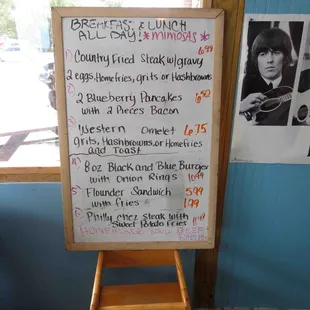 BREAKFAST & LUNCH
ALL DAY! *MIMOSAS*
1) Country Fried Steak w/gravy 6.99
2 eggs, Homefries, grits or Hashbrowns
2 Blueberry Pancakes 6.50
with 2 Pieces Bacon
Western Omelet 6.75
grits, Hashbrowns, or Homefries
and Toast
4) 8oz Black and Blue Burger
with Onion Rings 10.99
5) Flounder Sandwich 5.99
with fries 1.99
6) Philly chez steak with
Sweet Potato Fries
HOMEMADE